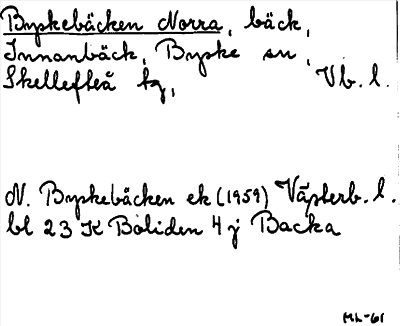 Byskebäcken Norra, bäck,
Innanbäck, Byske sn,
Skellefteå kg, Vb. l.
N. Byskebäcken ek (1959) Västerb. l.
bl 23 K Boliden 4 j Backa
ML-61